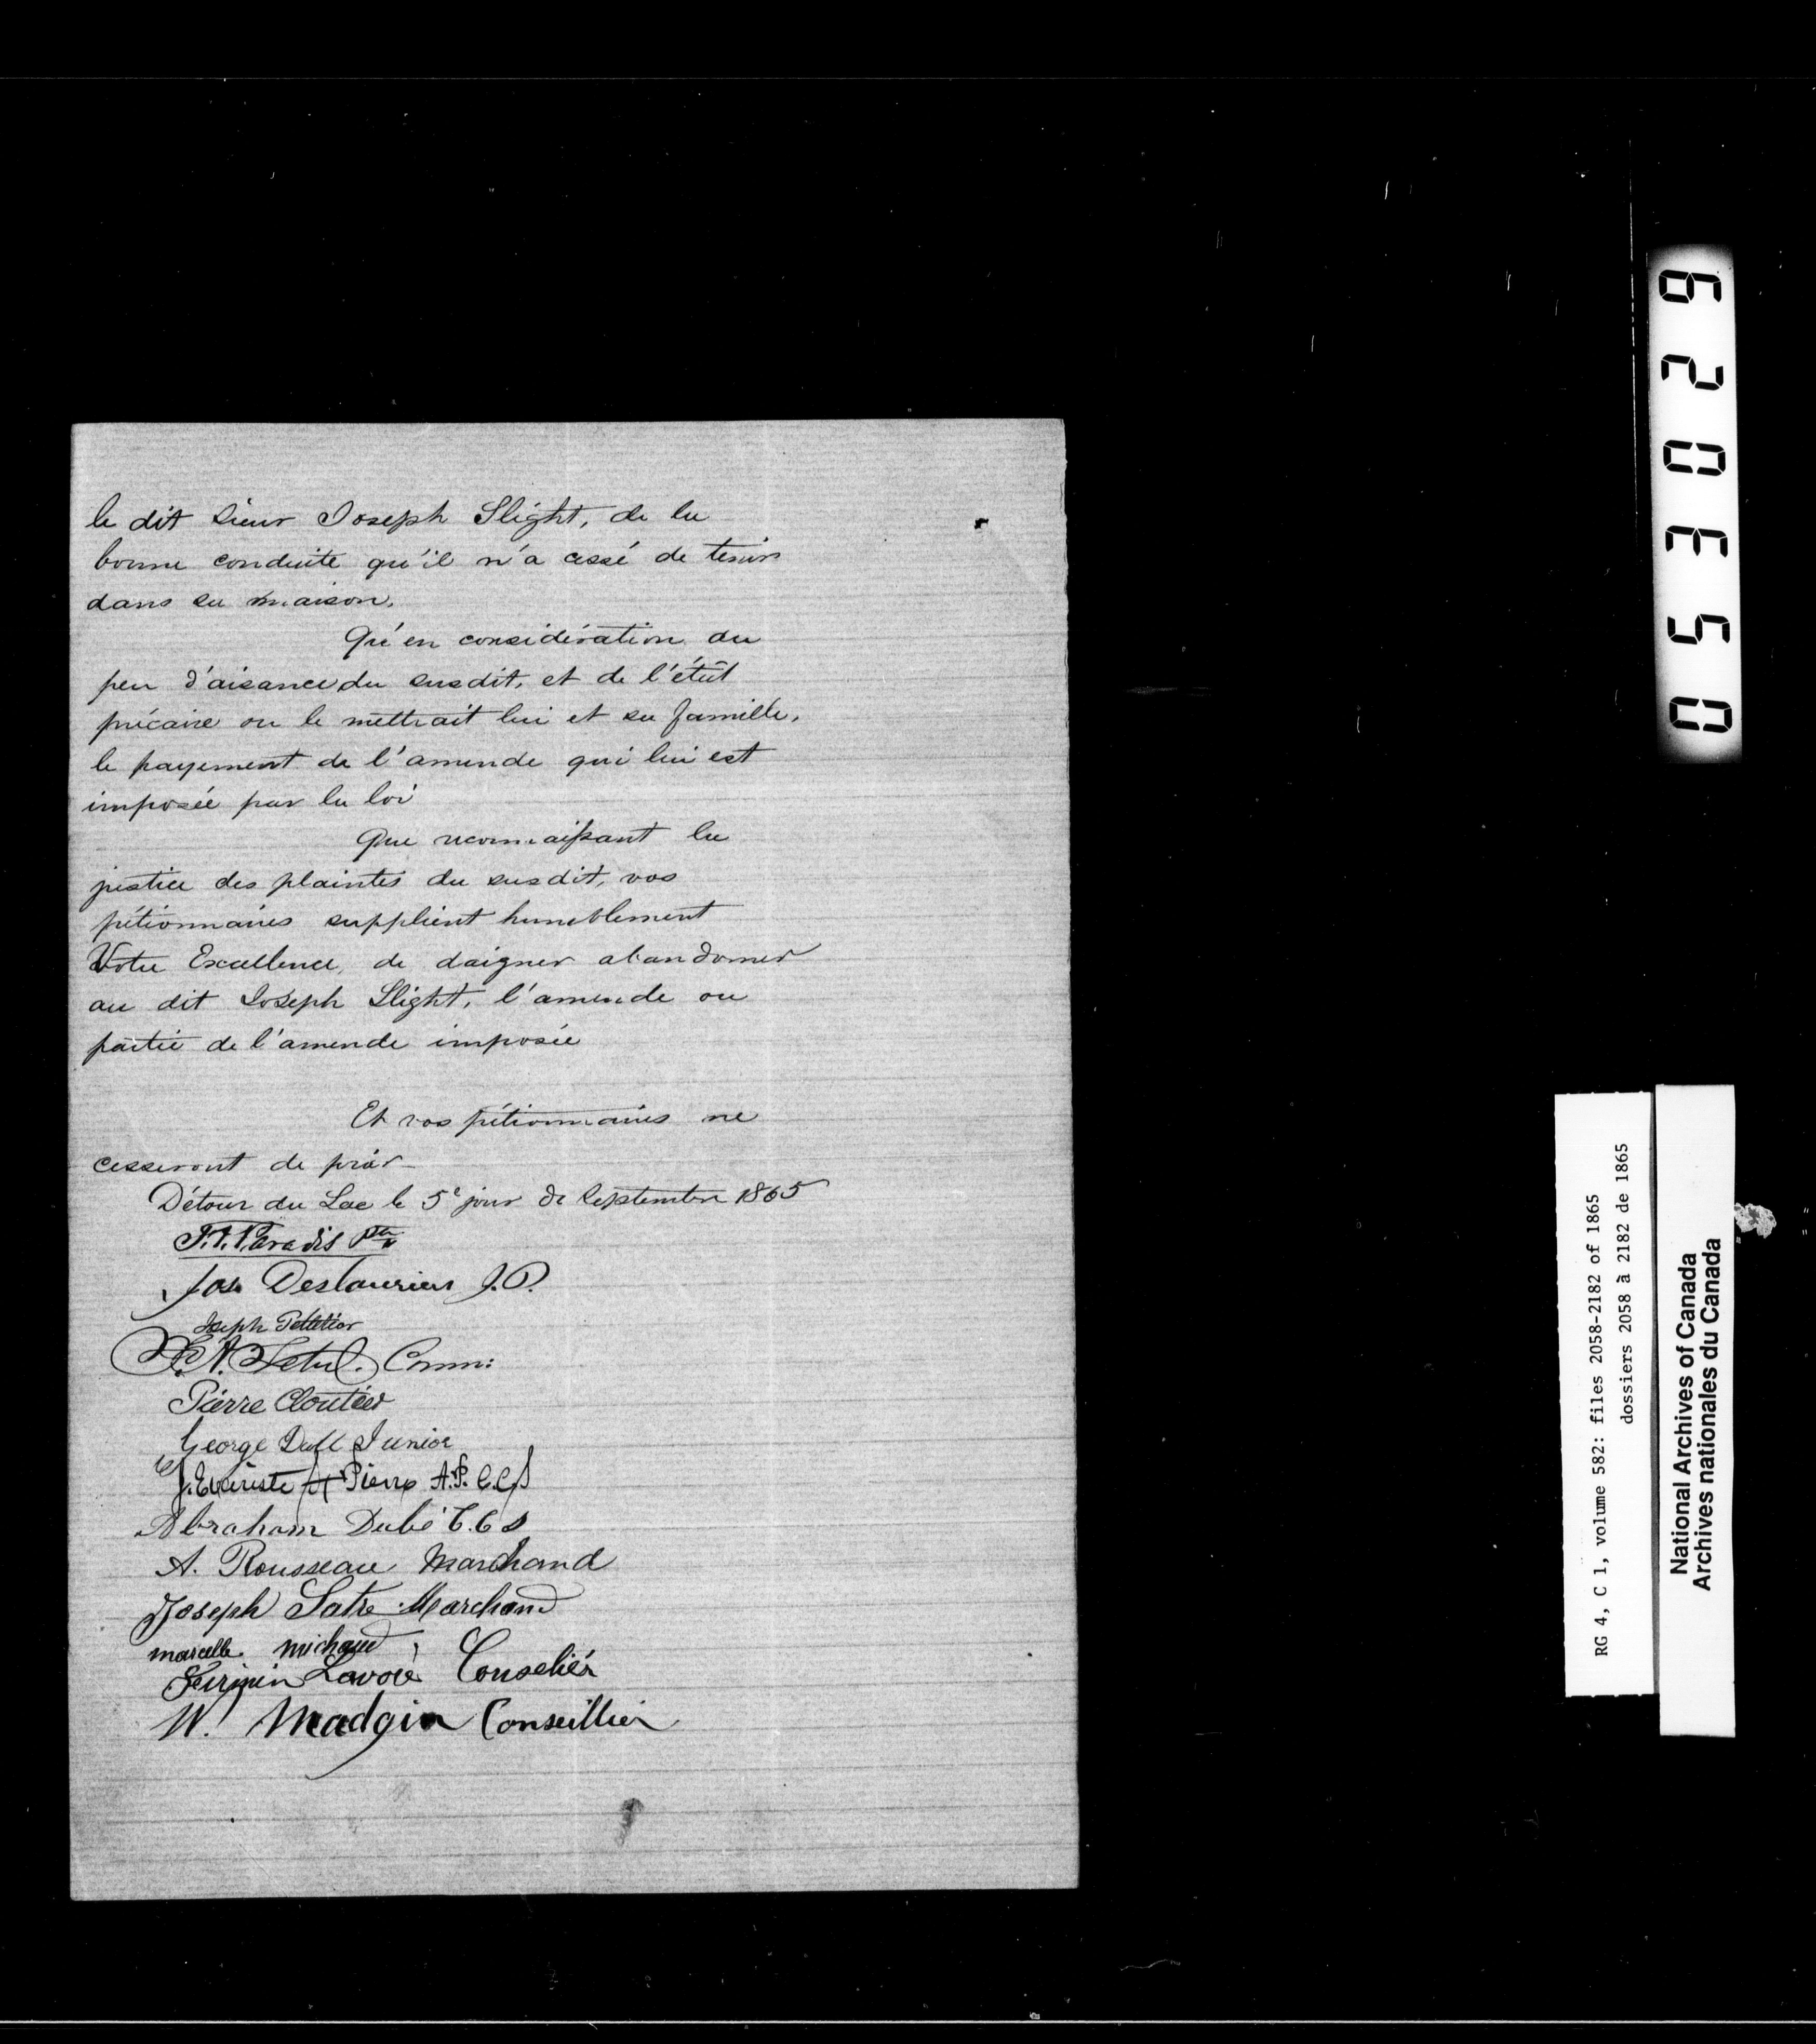 le dit Sieur Joseph Slight, de la
bonne conduite qu'il n'a cessé de tenir
dans sa maison.
Qu'en considération du
peu d'aisance du susdit, et de l'étât
précaire ou le mettrait lui et sa famille,
le payement de l'amende qui lui est
imposée par la loi
Que reconnaissant la
justice des plaintes du susdit, vos
pétionnaires supplient humblement
Votre Excellence, de daigner abandonner
au dit Joseph Slight, l'amende ou
partie de l'amende imposée
Et vos pétionnaires ne
cesseront de prier
Détour du Lac le 5e jour de Septembre 1865
Paradis Ptre
Jos. Deslauriers J.P.
Joseph Pelletier
Comm:
Pierre Cloutier
George Dall Junior
J. Evariste St Pierre A.P. C.C.S
Abraham Dubé C.C S
A. Rousseau Marchand
Joseph Marchand
marcelle michaud
Firmin Lavoie Conselier
W. Madgin Conseillier
620350
RG 4, C 1, volume 582: files 2058-2182 of 1865
dossiers 2058 à 2182 de 1865
National Archives of Canada
Archives nationales du Canada